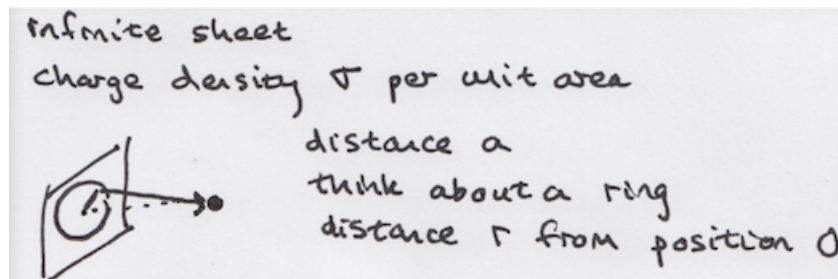 infinite sheet
charge density σ per unit area
distance a
think about a ring
distance r from position O